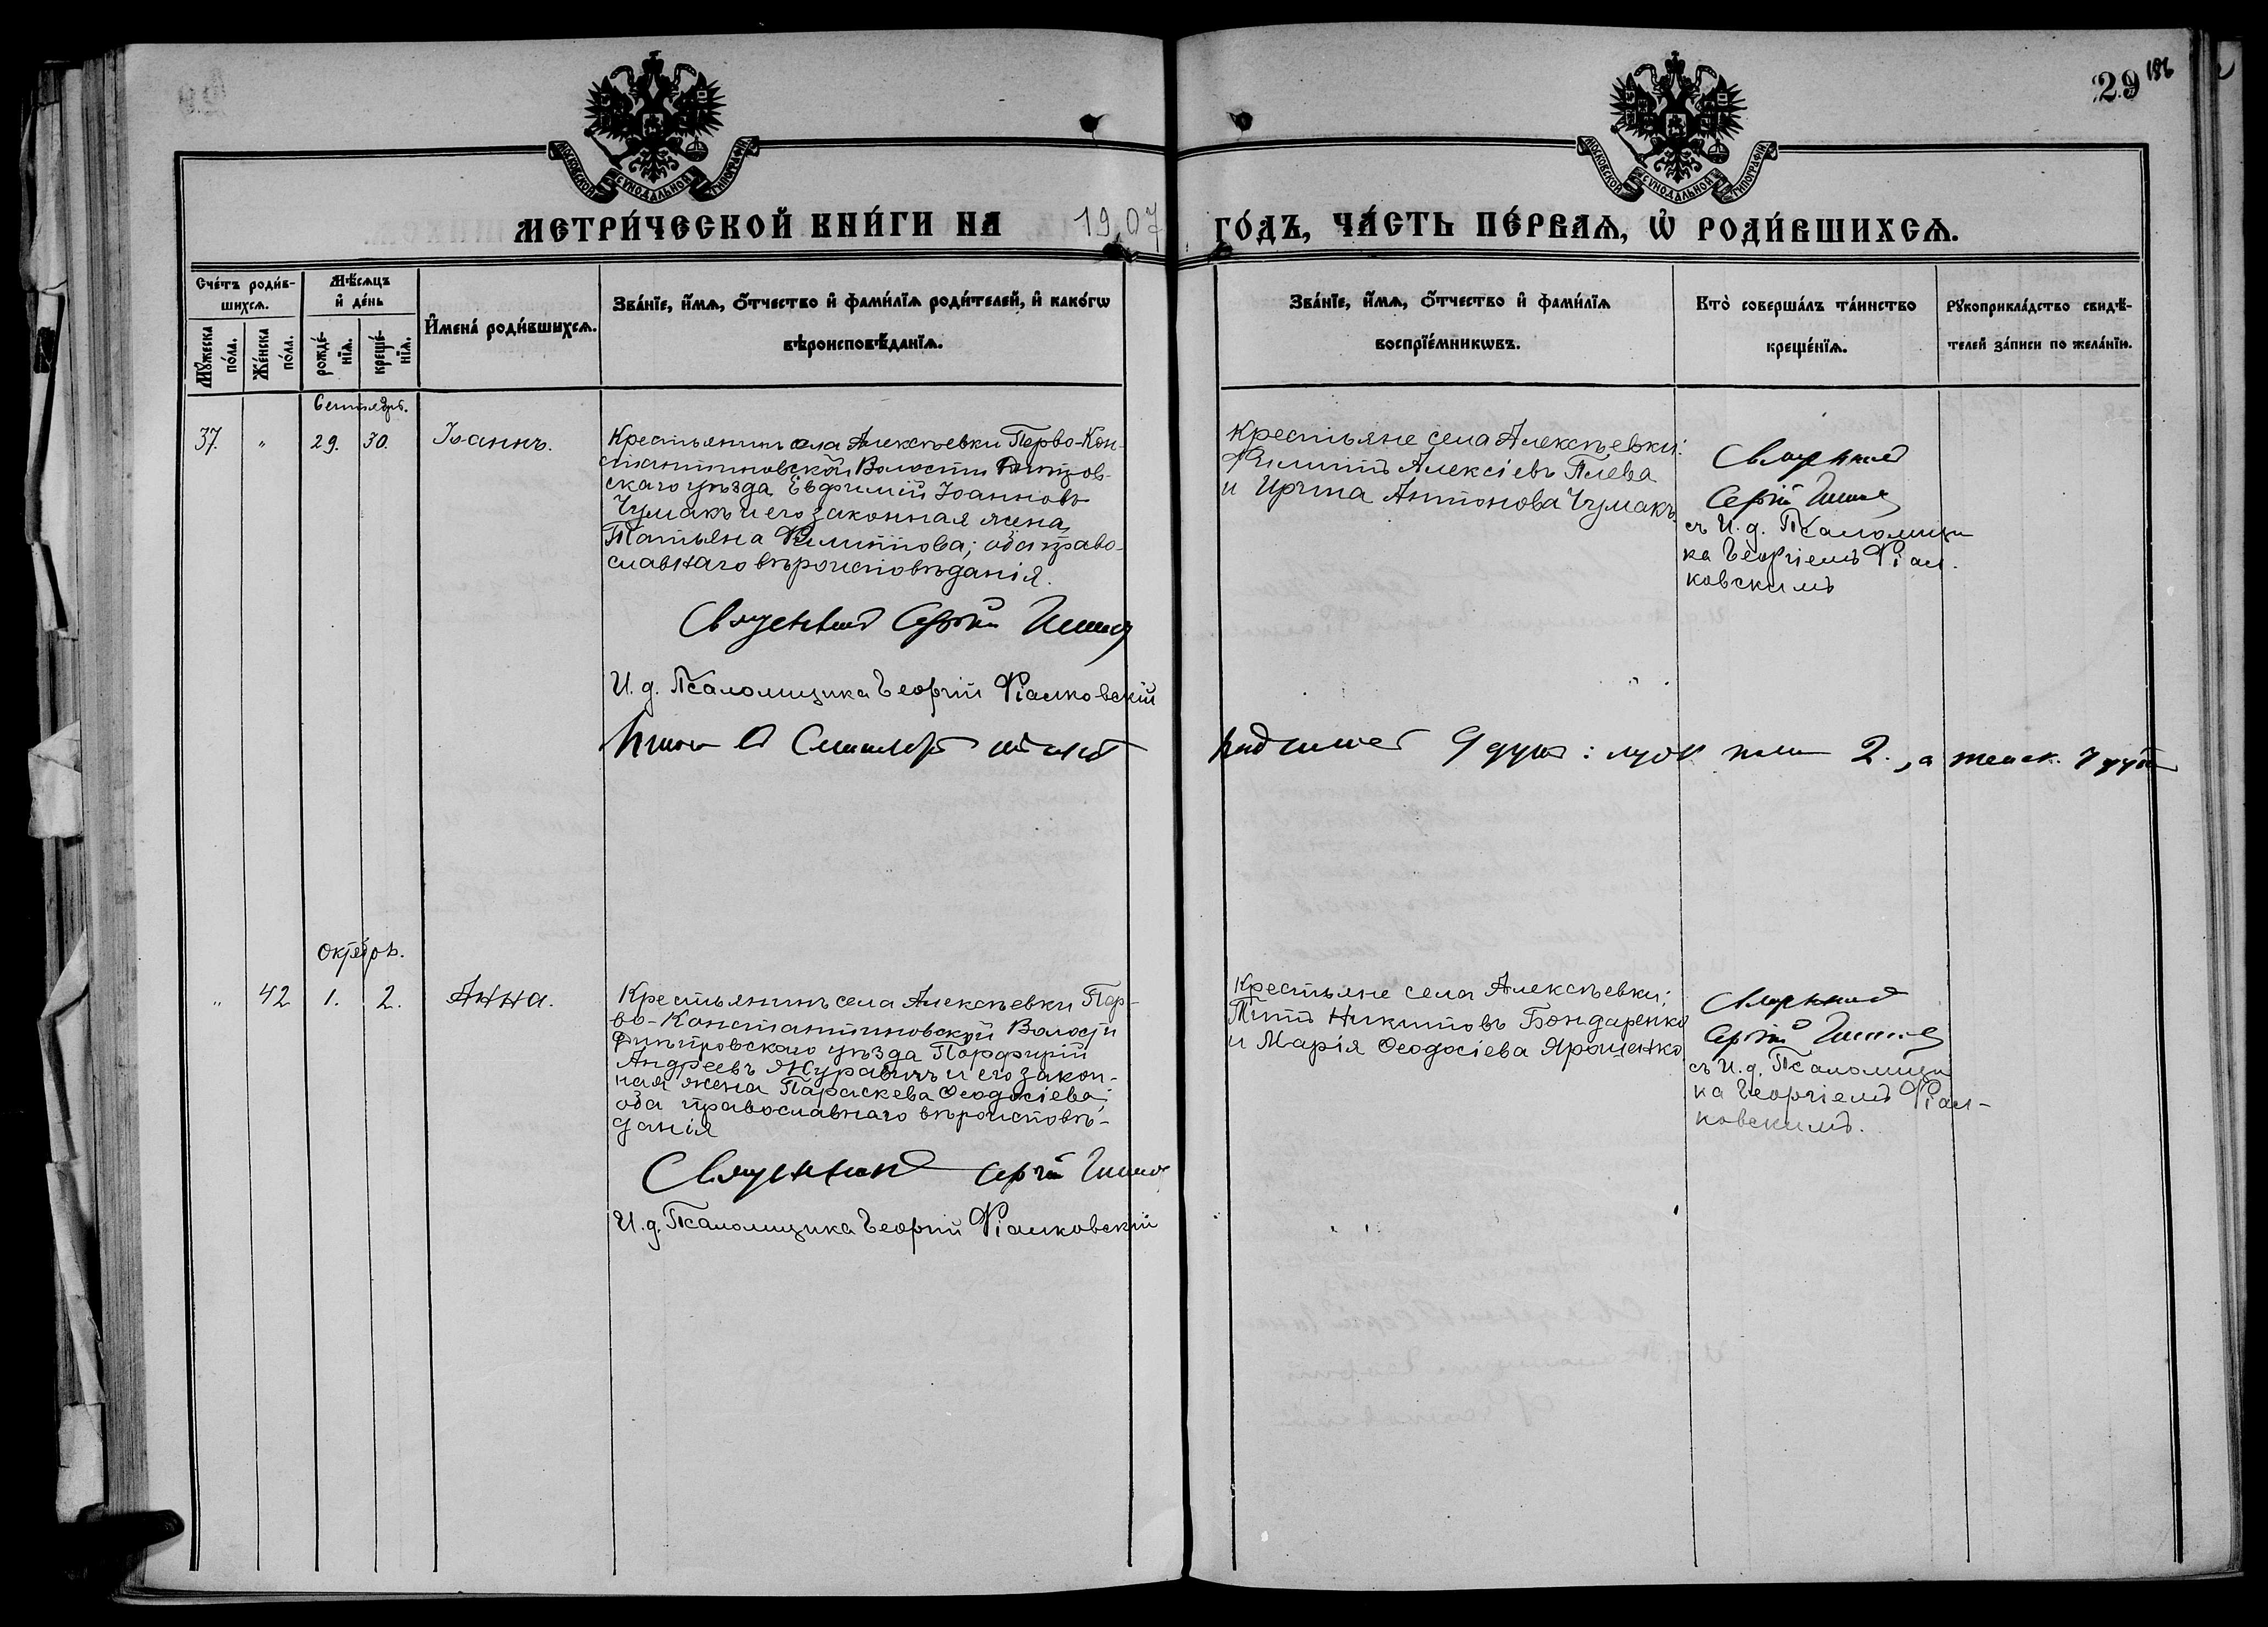 29 186
МОСКОВСКОЙ СѴНОДАЛЬНОЙ ТИПОГРАФІИ
МОСКОВСКОЙ СѴНОДАЛЬНОЙ ТИПОГРАФІИ
МЕТРИ́ЧЕСКОЙ КНИ́ГИ НА 1907 ГО́ДЪ, ЧА́СТЬ ПЕ́РВАѦ, Ѡ҆ РОДИ́ВШИХСѦ.
Сче́тъ роди́в-
шихсѧ.
Мꙋ́жеска по́ла.
Же́нска по́ла.
Мѣ́сѧцъ
и҆ де́нь
рожде́-
нїѧ.
креще́-
нїѧ.
И҆мена̀ роди́вшихсѧ.
Зва́нїе, и҆́мѧ, ѻ҆́тчество и҆ фами́лїѧ роди́телей, и҆ како́гѡ
вѣроисповѣ́данїѧ.
Зва́нїе, и҆́мѧ, ѻ҆́тчество и҆ фами́лїѧ
воспрїе́мникѡвъ.
Кто̀ соверша́лъ та́инство
креще́нїѧ.
Рꙋкоприкла́дство свидѣ́-
телей за́писи по жела́нїю.
Сентябрь.
37. " 29. 30. Іоаннъ.
Крестьянинъ села Алексѣевки Перво-Кон-
стантиновской Волости Днѣпров-
скаго уѣзда Евфимій Іоанновъ
Чумакъ и его законная жена
Татьяна Филиппова; оба право-
славнаго вѣроисповѣданія.
Священникъ Сергій
И. д. Псаломщика Георгій Фіалковскій
Крестьяне села Алексѣевки:
Филиппъ Алексіевъ Плева
и Ирина Антонова Чумакъ.
Священникъ
Сергій
съ И. д. Псаломщи
ка Георгіемъ Фіал-
ковскимъ
Сентябрѣ родилось 9 душъ: муж. пола 2., а женск. 7 душъ
Октябрь.
" 42 1. 2. Анна.
Крестьянинъ села Алексѣевки Пер-
во-Константиновской Волости
Днѣпровскаго уѣзда Порфирій
Андреевъ Журавичъ и его закон-
ная жена Параскева Ѳеодосіева;
оба православнаго вѣроисповѣ-
данія
Священникъ Сергій
И. д. Псаломщика Георгій Фіалковскій
Крестьяне села Алексѣевки;
Титъ Никитовъ Бондаренко
и Марія Ѳеодосіева Ярошенко
Священникъ
Сергій
съ И. д. Псаломщи
ка Георгіемъ Фіал-
ковскимъ.